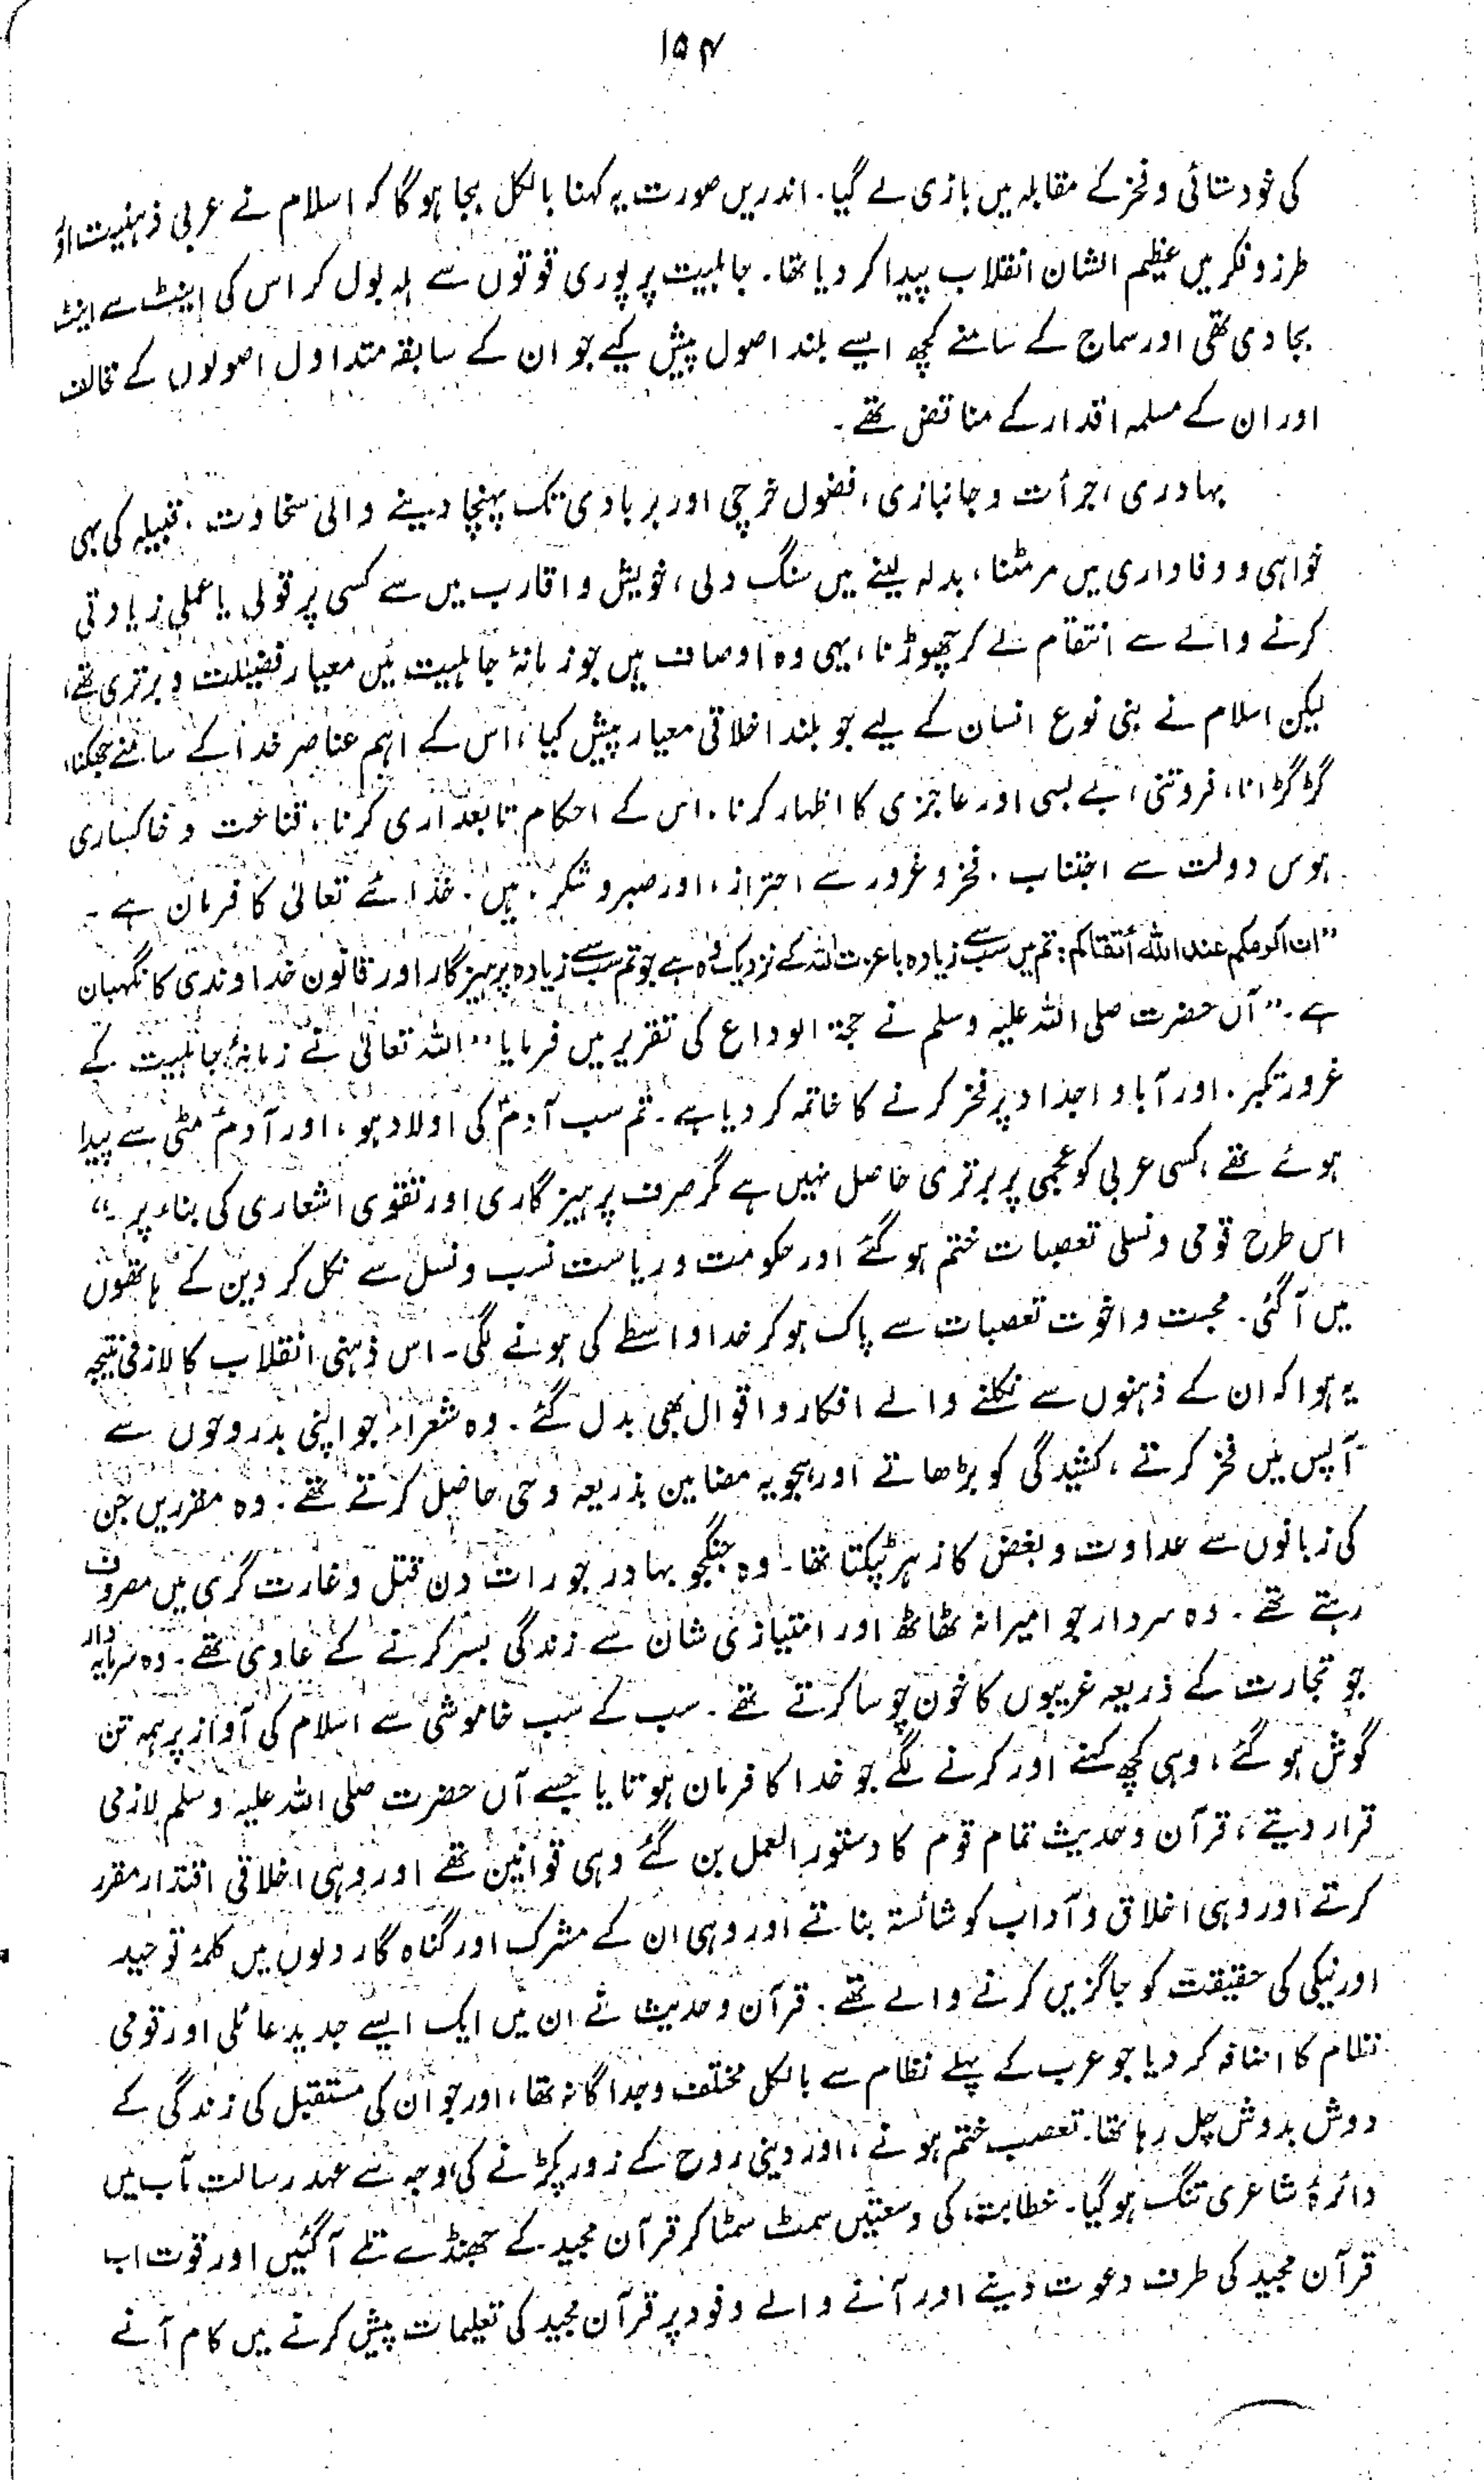 ۱۵۴
کی خودستائی و فخر کے مقابلہ میں بازی لے گیا۔ اندریں صورت یہ کہنا بالکل بجا ہوگا کہ اسلام نے عربی ذہنیت اور
طرز و فکر میں عظیم الشان انقلاب پیدا کر دیا تھا۔ جاہلیت پر پوری قوتوں سے ہلہ بول کر اس کی اینٹ سے اینٹ
بجا دی تھی اور سماج کے سامنے کچھ ایسے بلند اصول پیش کیے جو ان کے سابقہ متداول اصولوں کے مخالف
اور ان کے مسلمہ اقدار کے مناقض تھے۔
بہادری، جرأت و جانبازی، فضول خرچی اور بربادی تک پہنچا دینے والی سخاوت، قبیلہ کی بہی
خواہی و وفاداری میں مرمٹنا، بدلہ لینے میں سنگ دلی، خویش و اقارب میں سے کسی پر قولی یا عملی زیادتی
کرنے والے سے انتقام لے کر چھوڑنا، یہی وہ اوصاف ہیں جو زمانۂ جاہلیت میں معیار فضیلت و برتری تھے،
لیکن اسلام نے بنی نوع انسان کے لیے جو بلند اخلاقی معیار پیش کیا، اس کے اہم عناصر خدا کے سامنے جھکنا،
گڑگڑانا، فروتنی، بے بسی اور عاجزی کا اظہار کرنا، اس کے احکام تابعداری کرنا، قناعت و خاکساری
ہوس دولت سے اجتناب، فخر و غرور سے احتراز، اور صبر و شکر، ہیں۔ خدائے تعالیٰ کا فرمان ہے۔
”ان اکرمکم عند اللہ أتقاکم: تم میں سب سے زیادہ باعزت اللہ کے نزدیک وہ ہے جو تم سب سے زیادہ پرہیزگار اور قانون خداوندی کا نگہبان
ہے۔“ آں حضرت صلی اللہ علیہ وسلم نے حجۃ الوداع کی تقریر میں فرمایا ”اللہ تعالیٰ نے زمانۂ جاہلیت کے
غرور تکبر، اور آباو اجداد پر فخر کرنے کا خاتمہ کر دیا ہے۔ تم سب آدمؑ کی اولاد ہو، اور آدمؑ مٹی سے پیدا
ہوئے تھے، کسی عربی کو عجمی پر برتری حاصل نہیں ہے مگر صرف پرہیزگاری اور تقوی اشعاری کی بناء پر۔“
اس طرح قومی و نسلی تعصبات ختم ہو گئے اور حکومت و ریاست نسب و نسل سے نکل کر دین کے ہاتھوں
میں آ گئی۔ محبت و اخوت تعصبات سے پاک ہو کر خدا واسطے کی ہونے لگی۔ اس ذہنی انقلاب کا لازمی نتیجہ
یہ ہوا کہ ان کے ذہنوں سے نکلنے والے افکار و اقوال بھی بدل گئے۔ وہ شعراء جو اپنی بدروحوں سے
آپس میں فخر کرتے، کشیدگی کو بڑھاتے اور ہجویہ مضامین بذریعہ وحی حاصل کرتے تھے۔ وہ مقرریں جن
کی زبانوں سے عداوت و بغض کا زہر ٹپکتا تھا۔ وہ جنگجو بہادر جو رات دن قتل و غارت گری میں مصروف
رہتے تھے۔ وہ سردار جو امیرانہ ٹھاٹھ اور امتیازی شان سے زندگی بسر کرنے کے عادی تھے۔ وہ سرمایہ دار
جو تجارت کے ذریعہ غریبوں کا خون چوسا کرتے تھے۔ سب کے سب خاموشی سے اسلام کی آواز پر ہمہ تن
گوش ہو گئے، وہی کچھ کہنے اور کرنے لگے جو خدا کا فرمان ہوتا یا جسے آں حضرت صلی اللہ علیہ وسلم لازمی
قرار دیتے، قرآن و حدیث تمام قوم کا دستور العمل بن گئے وہی قوانین تھے اور وہی اخلاقی اقتدار مقرر
کرتے اور وہی اخلاق و آداب کو شائستہ بناتے اور وہی ان کے مشرک اور گناہ گار دلوں میں کلمۂ توحید
اور نیکی کی حقیقت کو جاگزیں کرنے والے تھے۔ قرآن و حدیث نے ان میں ایک ایسے جدید عائلی اور قومی
نظام کا اضافہ کر دیا جو عرب کے پہلے نظام سے بالکل مختلف و جداگانہ تھا، اور جو ان کی مستقبل کی زندگی کے
دوش بدوش چل رہا تھا۔ تعصب ختم ہونے، اور دینی روح کے زور پکڑنے کی وجہ سے عہد رسالت مآب میں
دائرۂ شاعری تنگ ہو گیا۔ خطابت، کی وسعتیں سمٹ سمٹا کر قرآن مجید کے جھنڈے تلے آ گئیں اور قوت اب
قرآن مجید کی طرف دعوت دینے اور آنے والے وفود پر قرآن مجید کی تعلیمات پیش کرنے میں کام آنے